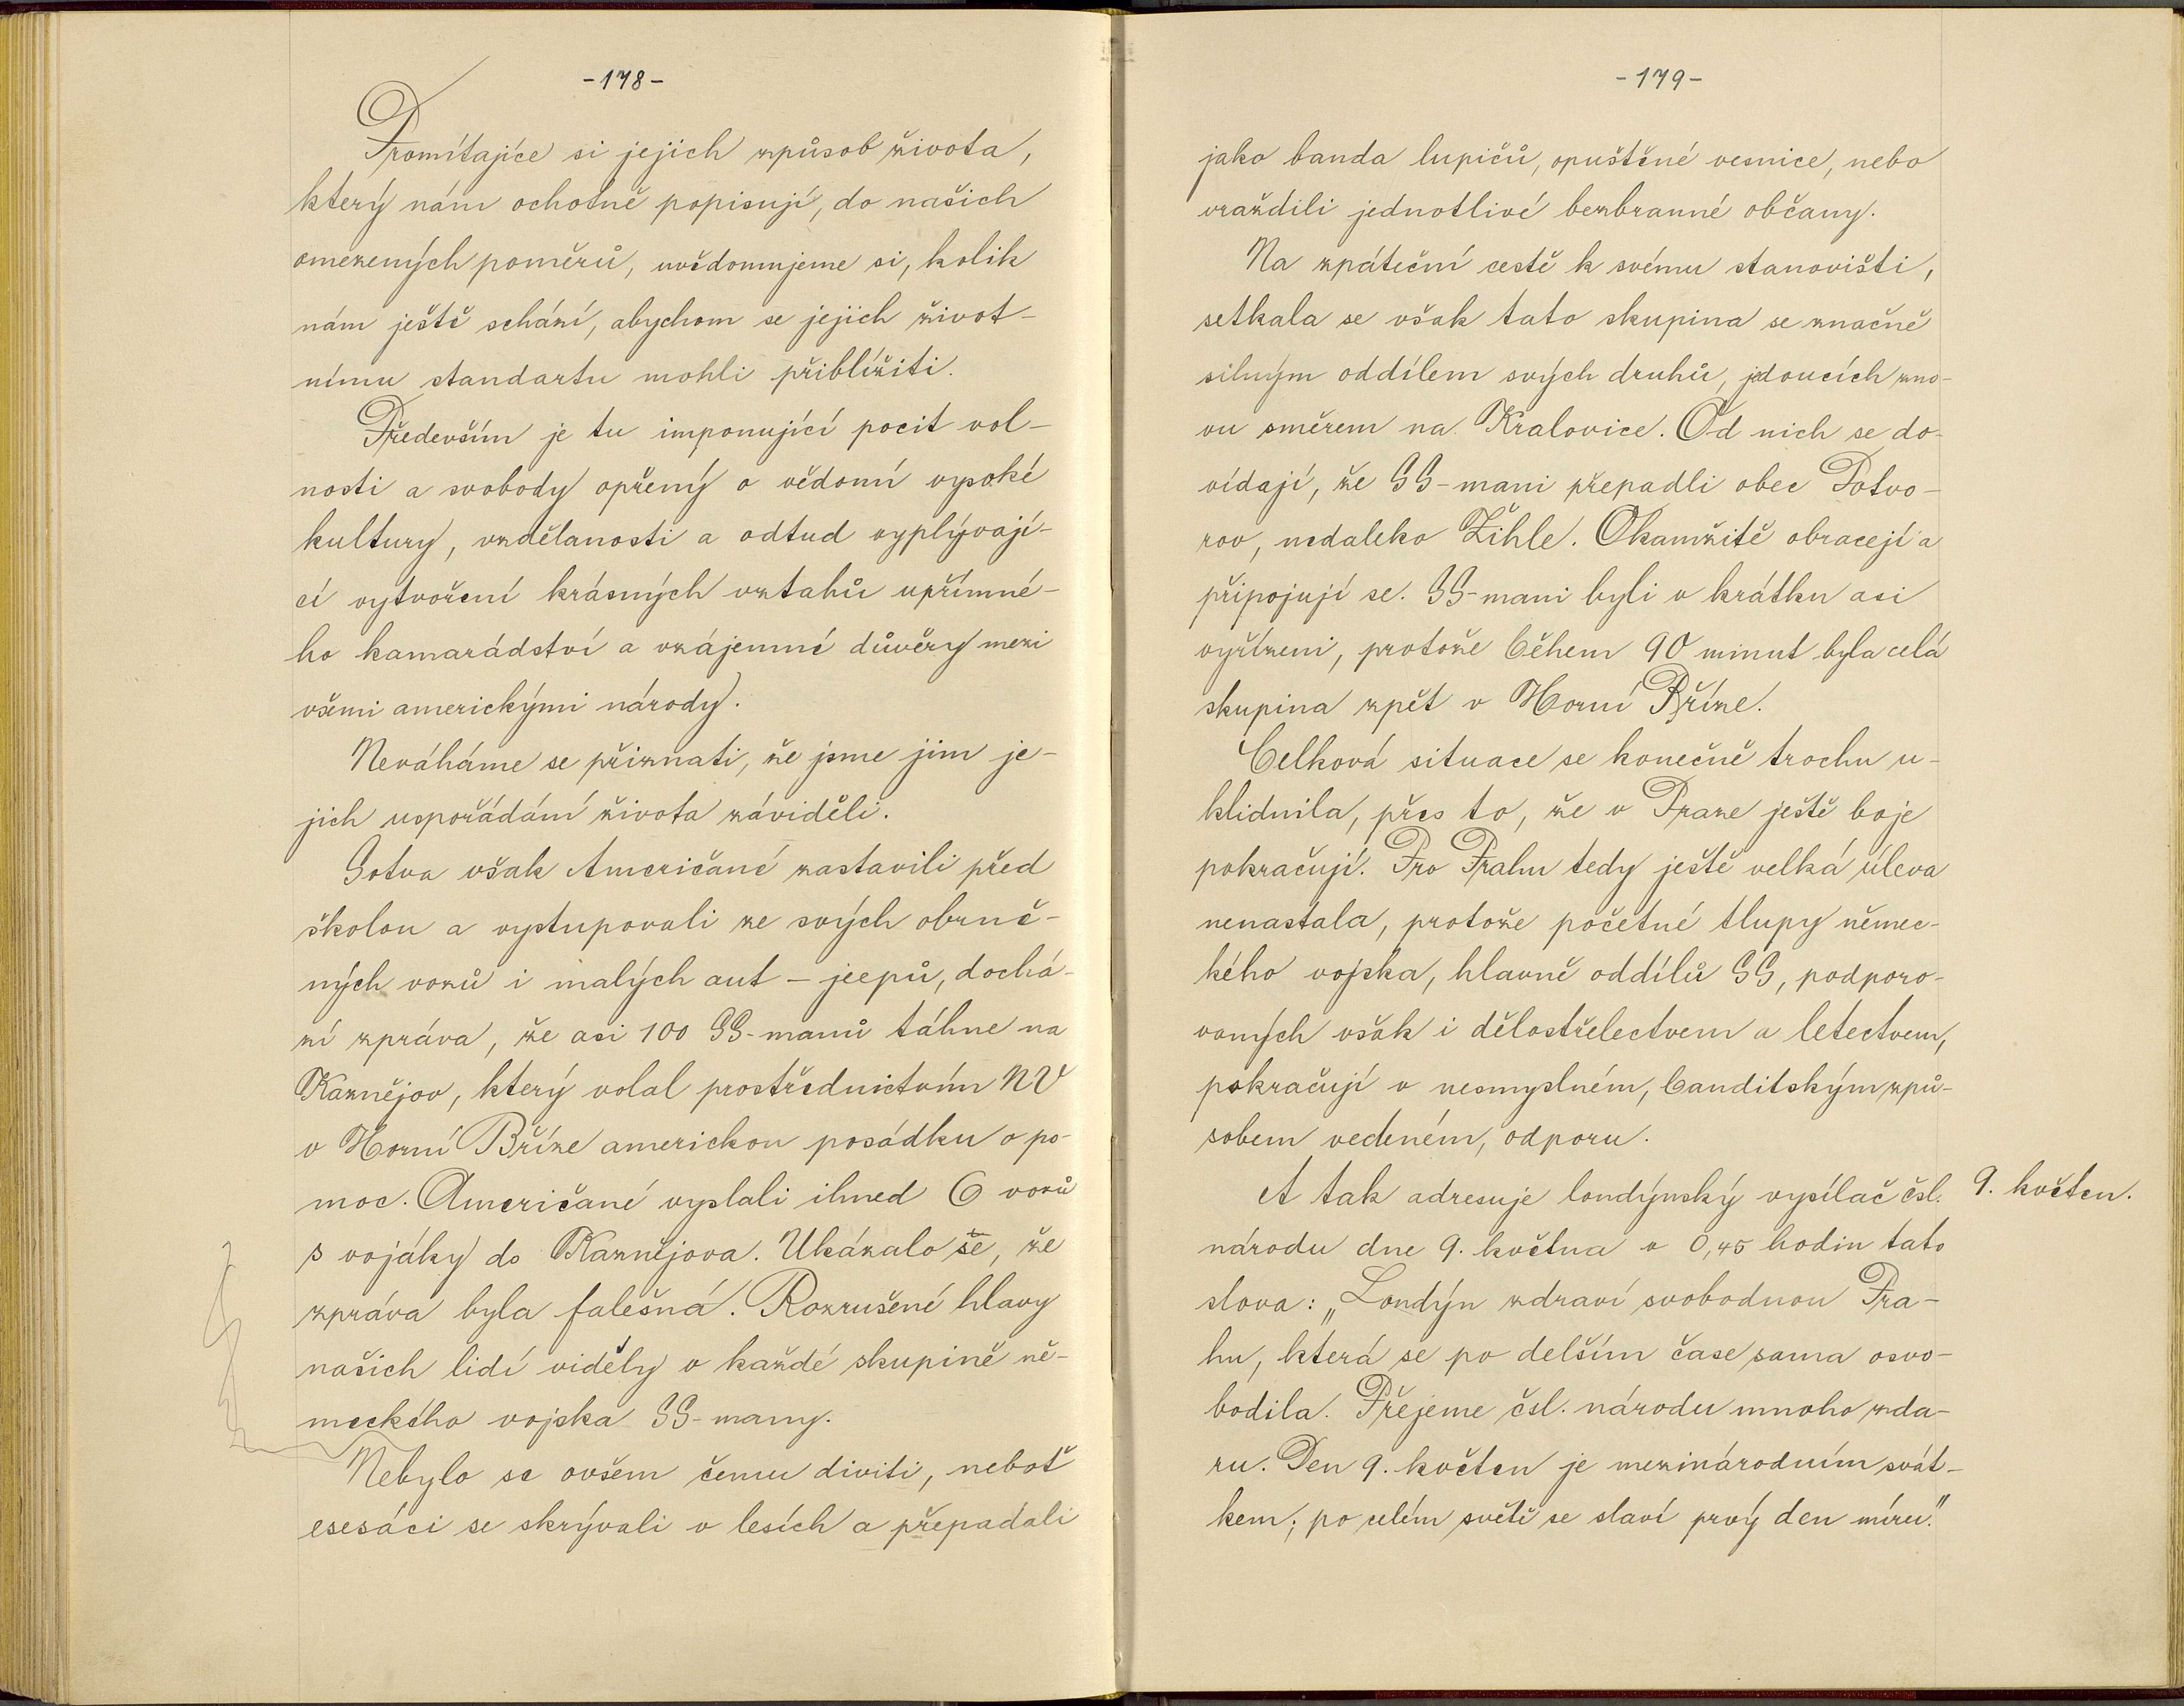 -178-
Promítajíce si jejich způsob života,
který nám ochotně popisují, do našich
omezených poměrů, uvědomujeme si, kolik
nám ještě schází, abychom se jejich život-
nímu standartu mohli přiblížiti.
Především je tu imponující pocit vol-
nosti a svobody opřený o vědomí vysoké
kultury, vzdělanosti a odtud vyplývají-
cí vytvoření krásných vztahů upřímné-
ho kamarádství a vzájemné důvěry mezi
všemi americkými národy.
Neváháme se přiznati, že jsme jim je-
jich uspořádání života záviděli.
Sotva však Američané zastavili před
školou a vystupovali ze svých obrně-
ných vozů i malých aut – jeepů, dochá-
zí zpráva, že asi 100 SS-manů táhne na
Kaznějov, který volal prostřednictvím NV
v Horní Bříze americkou posádku o po-
moc. Američané vyslali ihned 6 vozů
s vojáky do Kaznějova. Ukázalo se, že
zpráva byla falešná. Rozrušené hlavy
našich lidí viděly v každé skupině ně-
meckého vojska SS-many.
Nebylo se ovšem čemu diviti, neboť
esesáci se skrývali v lesích a přepadali
-179-
jako banda lupičů, opuštěné vesnice, nebo
vraždili jednotlivé bezbranné občany.
Na zpáteční cestě k svému stanovišti,
setkala se však tato skupina se značně
silným oddílem svých druhů, jdoucích zno-
vu směrem na Kralovice. Od nich se do-
vídají, že SS-mani přepadli obec Potvo-
rov, nedaleko Žihle. Okamžitě obracejí a
připojují se. SS-mani byli v krátku asi
vyřízeni, protože během 90 minut byla celá
skupina zpět v Horní Bříze.
Celková situace se konečně trochu u-
klidnila, přes to, že v Praze ještě boje
pokračují. Pro Prahu tedy ještě velká úleva
nenastala, protože početné tlupy němec-
kého vojska, hlavně oddílů SS, podporo-
vaných však i dělostřelectvem a letectvem,
pokračují v nesmyslném, banditským způ-
sobem vedeném, odporu.
A tak adresuje londýnský vysílač čsl.
9. květen.
národu dne 9. května v 0,45 hodin tato
slova: „Londýn zdraví svobodnou Pra-
hu, která se po delším čase sama osvo-
bodila. Přejeme čsl. národu mnoho zda-
ru. Den 9. květen je mezinárodním svát-
kem; po celém světě se slaví prvý den míru."